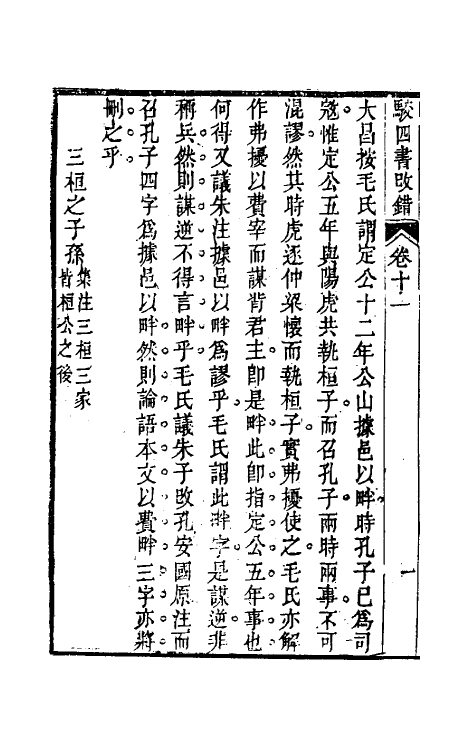 駁四書改錯 卷十一 一
大昌按毛氏謂定公十二年公山據邑以畔時孔子已為司
寇惟定公五年與陽虎共執桓子而召孔子兩時兩事不可
混謬然其時虎逐仲梁懷而執桓子實弗擾使之毛氏亦解
作弗擾以費宰而謀背君主卽是畔此卽指定公五年事也
何得又議朱注據邑以畔為謬乎毛氏謂此畔字是謀逆非
稱兵然則謀逆不得言畔乎毛氏議朱子改孔安國原注而
召孔子四字為據邑以畔然則論語本文以費畔三字亦將
刪之乎
三桓之子孫集注三桓三家
皆桓公之後